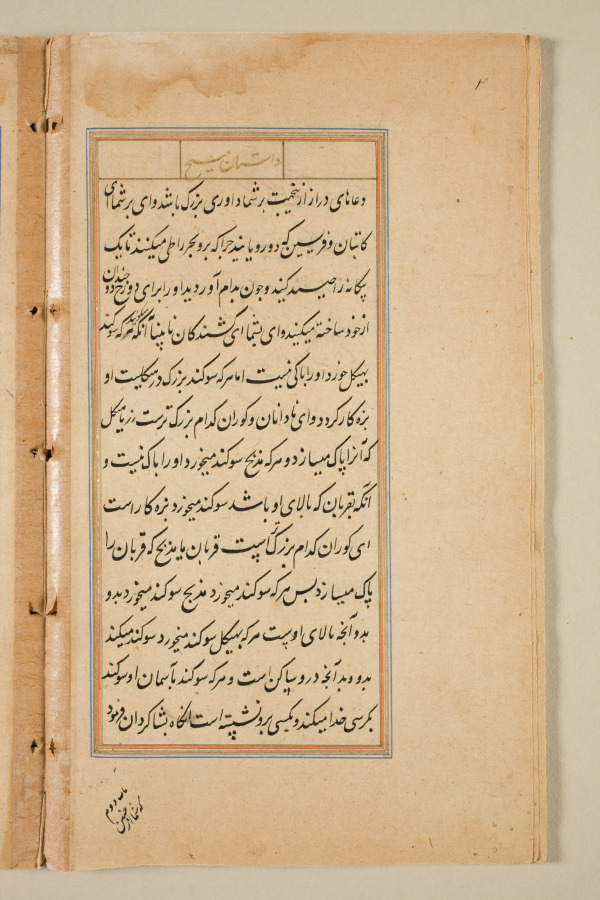 ۲
داستان مسیح
دعاهای دراز ازینجهت بر شما داوری بزرگ باشد وای بر شما ای
کاتبان و فریسین که دورویانید چرا که بر و بحر را طی میکنید تا یک
بیکانه را صید کنید و چون بدام آوردید او را برای دوزخ دو چندان
از خود ساخته میکنید وای بشما ای کشندکان نابینا آنکه میکویید هر که سوکند
بهیکل خورد او را باکی نیست اما هر که سوکند بزرک در هیکلست او
بزه کار کردد وای نادانان و کوران کدام بزرک ترست زر یا هیکل
که آنرا پاک میسازد و هر که مذبح سوکند میخورد او را باک نیست و
آنکه بقربان که بالای او باشد سوکند میخورد بزه کار است
ای کوران کدام بزرک تر است قربان یا مذبح که قربان را
پاک میسازد پس هر که سوکند میخورد مذبح سوکند میخورد بدو
بدو آنچه بالای اوست هر که بهیکل سوکند میخورد سوکند میکند
بدو و بدآنچه درو ساکن است و هر که سوکند بآسمان او سوکند
بکرسی خدا میکند و بکسی برو نشسته است آنکاه بشاکردان فرمود
باب دوم